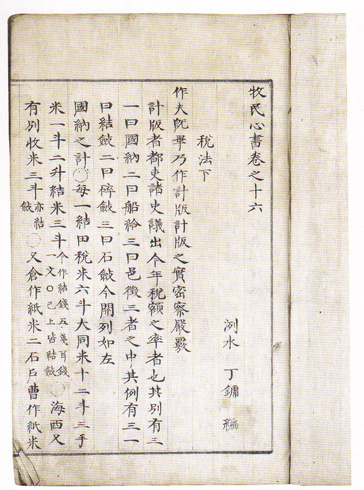 牧民心書卷之十六
洌水 丁鏞 編
稅法下
作夫旣畢乃作計版計版之實密察嚴覈
計版者都吏諸史議出今年稅額之率者也其別有三
一曰國納二曰船給三曰邑徵三者之中其例有三一
曰結斂二曰碑斂三曰石斂今開列如左
國納之計○每一結田稅米六斗大同米十二斗三手
米一斗二升結米三斗今作結錢五戔再錢一文○已上皆結斂○海西又
有別收米三斗亦結斂○又倉作紙米二石戶曹作紙米